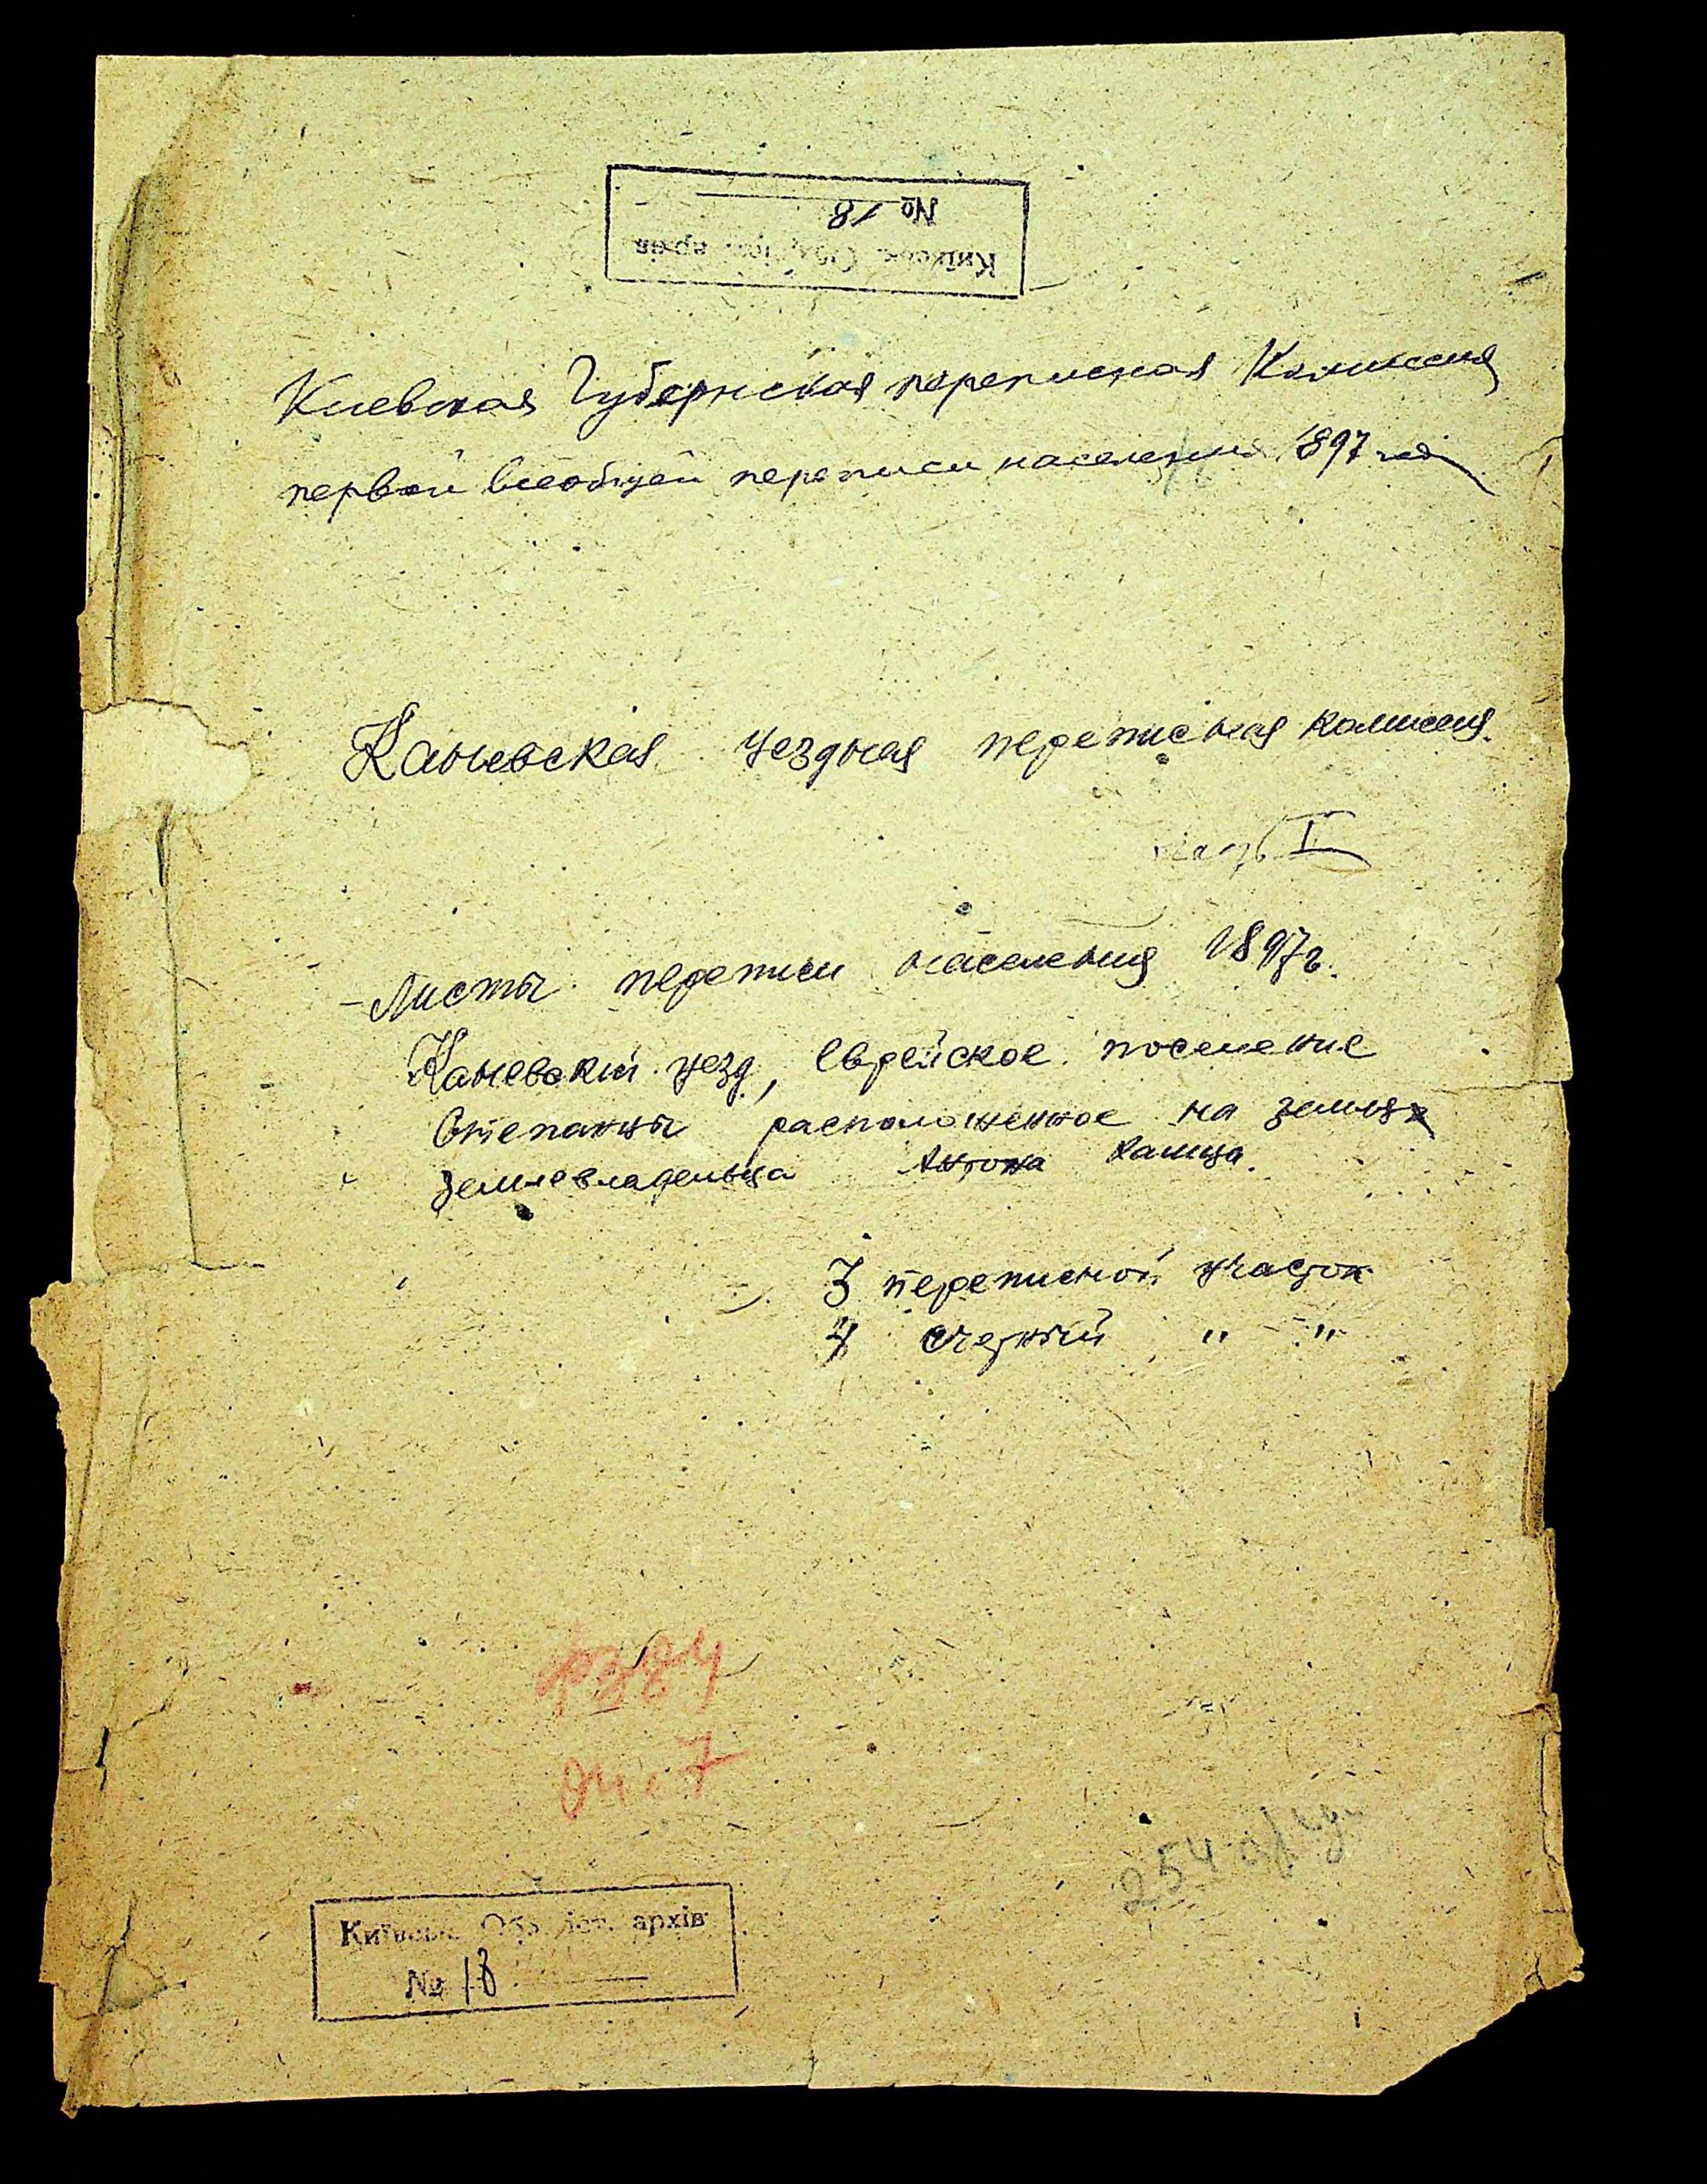 № 18
Київськ. архів
Киевская Губернская переписная Комиссия
первой всеобщей переписи населения 1897 года
Каневская уездная переписная комиссия.
часть I
- Листы переписи населения 1897 г.
Каневский уезд, еврейское поселение
Степанцы расположенное на землях
землевладельца Антона
3 переписной участок
4 счетный " - "
оп. 7
254
Київськ. іст. архів
№ 18